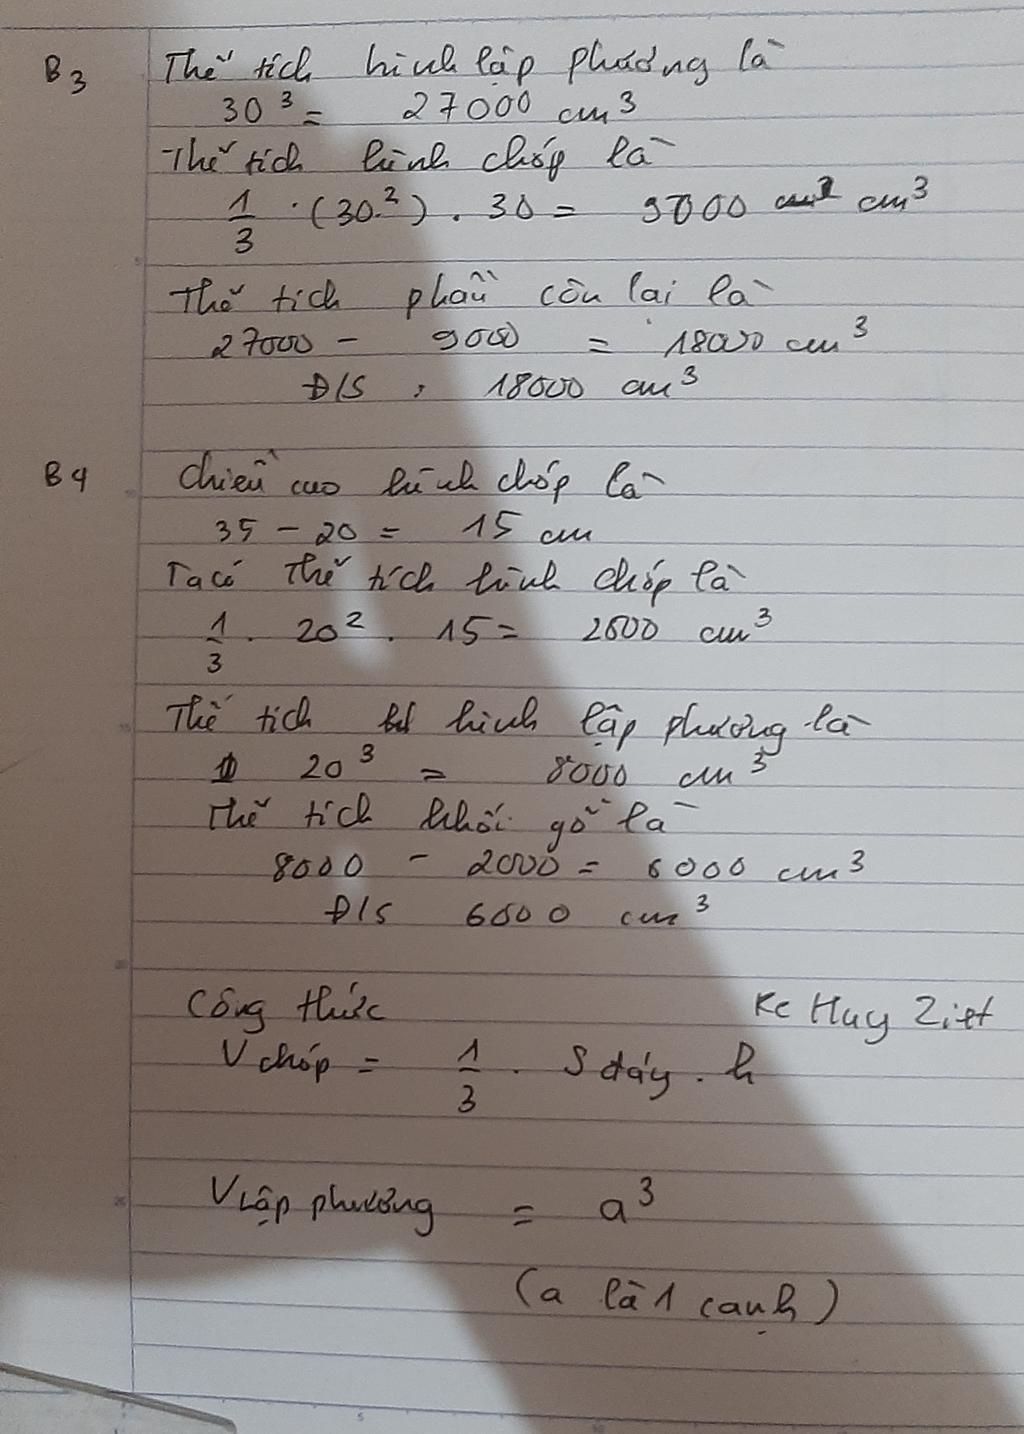 B3 Thể tích hình lập phương là
30³ = 27000 cm³
Thể tích hình chóp là
1/3 . (30²) . 30 = 9000 cm³
Thể tích phần còn lại là
27000 - 9000 = 18000 cm³
Đ/S : 18000 cm³
B4 Chiều cao hình chóp là
35 - 20 = 15 cm
Ta có Thể tích hình chóp là
1/3 . 20² . 15 = 2000 cm³
Thể tích hình lập phương là
20³ = 8000 cm³
Thể tích khối gỗ là
8000 - 2000 = 6000 cm³
Đ/S 6000 cm³
Công thức Kc Huy Ziet
V chóp = 1/3 . S đáy . h
V Lập phương = a³
(a là 1 cạnh)